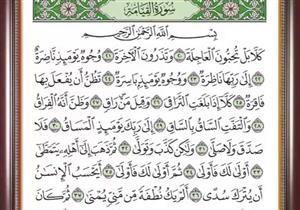 سُورَةُ القِيَامَةِ
بِسْمِ اللَّهِ الرَّحْمَٰنِ الرَّحِيمِ
كَلَّا بَلْ تُحِبُّونَ الْعَاجِلَةَ ٢٠ وَتَذَرُونَ الْآخِرَةَ ٢١ وُجُوهٌ يَوْمَئِذٍ نَاضِرَةٌ
٢٢ إِلَىٰ رَبِّهَا نَاظِرَةٌ ٢٣ وَوُجُوهٌ يَوْمَئِذٍ بَاسِرَةٌ ٢٤ تَظُنُّ أَنْ يُفْعَلَ بِهَا
فَاقِرَةٌ ٢٥ كَلَّا إِذَا بَلَغَتِ التَّرَاقِيَ ٢٦ وَقِيلَ مَنْ رَاقٍ ٢٧ وَظَنَّ أَنَّهُ الْفِرَاقُ
٢٨ وَالْتَفَّتِ السَّاقُ بِالسَّاقِ ٢٩ إِلَىٰ رَبِّكَ يَوْمَئِذٍ الْمَسَاقُ ٣٠ فَلَا
صَدَّقَ وَلَا صَلَّىٰ ٣١ وَلَٰكِنْ كَذَّبَ وَتَوَلَّىٰ ٣٢ ثُمَّ ذَهَبَ إِلَىٰ أَهْلِهِ يَتَمَطَّىٰ
٣٣ أَوْلَىٰ لَكَ فَأَوْلَىٰ ٣٤ ثُمَّ أَوْلَىٰ لَكَ فَأَوْلَىٰ ٣٥ أَيَحْسَبُ الْإِنْسَانُ
أَنْ يُتْرَكَ سُدًى ٣٦ أَلَمْ يَكُ نُطْفَةً مِنْ مَنِيٍّ يُمْنَىٰ ٣٧ ثُمَّ كَانَ